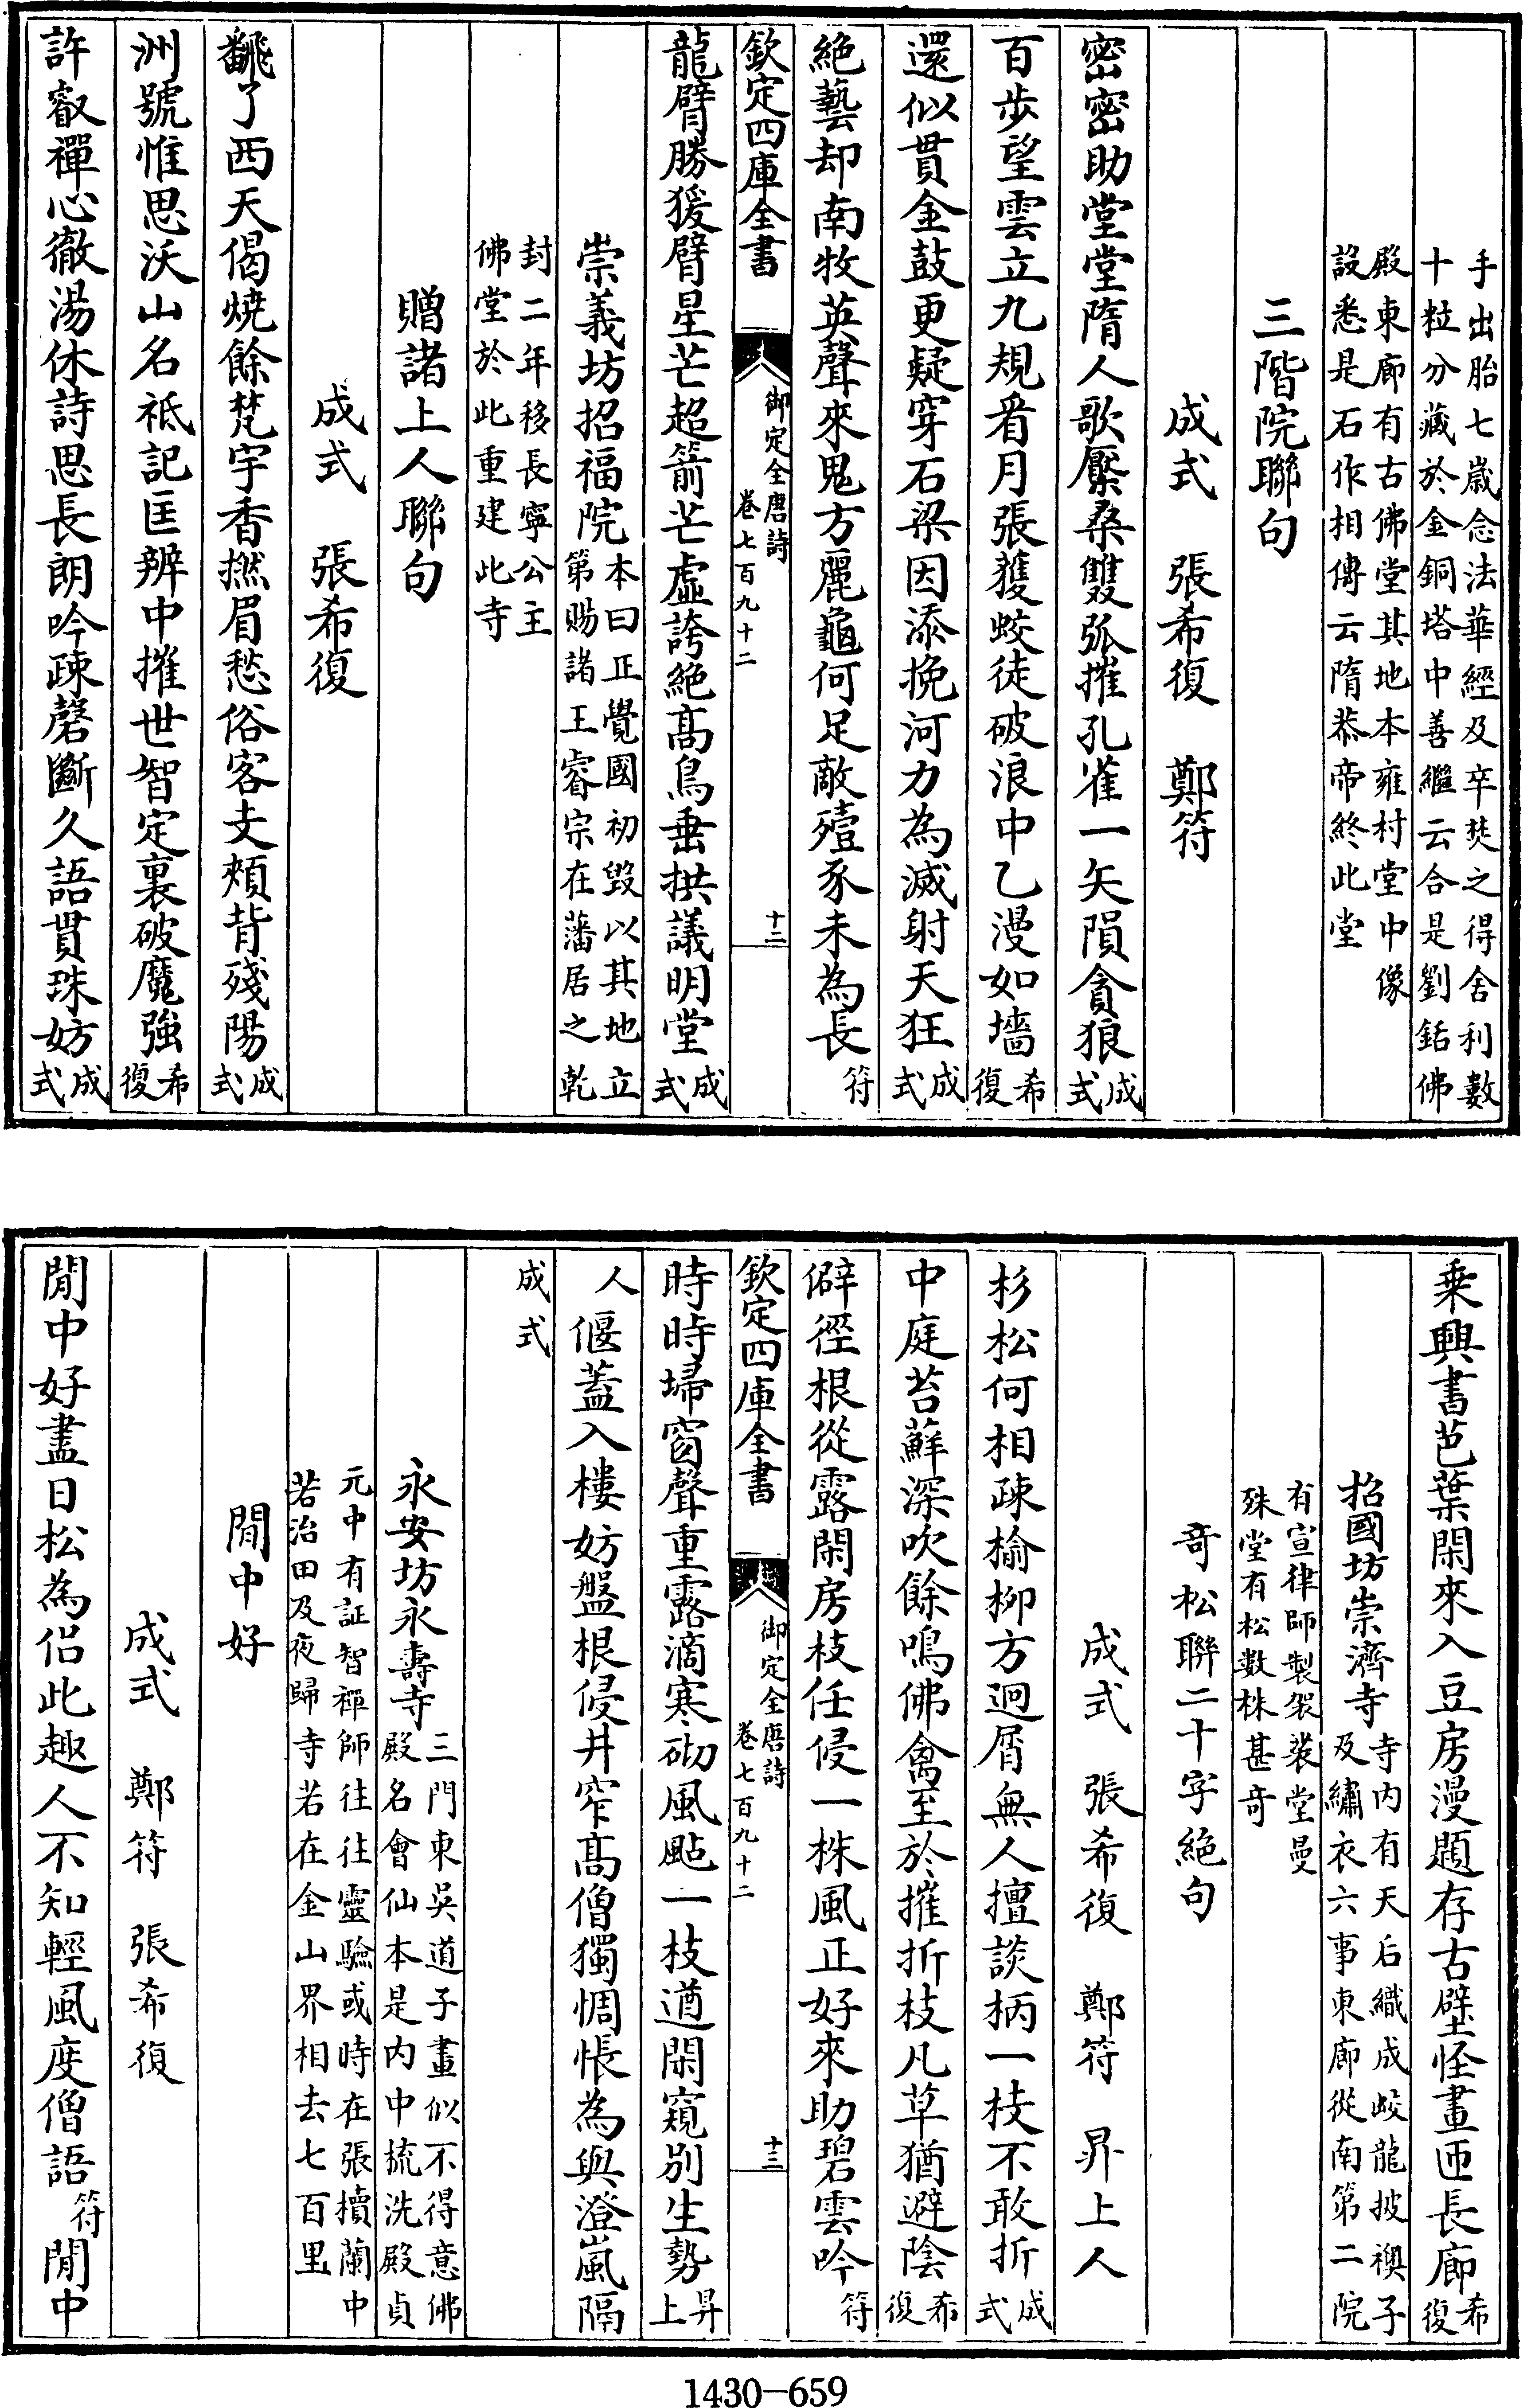 手出胎七歲念法華經及卒焚之得舍利數
十粒分藏於金銅塔中善繼云合是劉銛佛
殿東廊有古佛堂其地本雍村堂中像
設悉是石作相傳云隋恭帝終此堂
三階院聯句
成式 張希復 鄭符
密密助堂堂隋人歌檿桑雙弧摧孔雀一矢隕貪狼成式
百步望雲立九規看月張獲蛟徒破浪中乙漫如墻希復
還似貫金鼓更疑穿石梁因添挽河力為滅射天狂成式
絕藝却南牧英聲來鬼方麗龜何足敵殪豕未為長符
欽定四庫全書 御定全唐詩 卷七百九十二 十二
龍臂勝猨臂星芒超箭芒虛誇絕高鳥垂拱議明堂成式
崇義坊招福院本曰正覺國初毀以其地立
第賜諸王睿宗在藩居之乾
封二年移長寧公主
佛堂於此重建此寺
贈諸上人聯句
成式 張希復
飜了西天偈燒餘梵宇香撚眉愁俗客支頰背殘陽成式
洲號惟思沃山名祗記匡辨中摧世智定裏破魔強希復
許叡禪心徹湯休詩思長朗吟疎磬斷久語貫珠妨成式
乘興書芭葉閑來入豆房漫題存古壁怪畫匝長廊希復
招國坊崇濟寺寺內有天后織成蛟龍披襖子
及繡衣六事東廊從南第二院
有宣律師製袈裟堂曼
殊堂有松數株甚奇
奇松聯二十字絕句
成式 張希復 鄭符 昇上人
杉松何相疎榆柳方迥屑無人擅談柄一枝不敢折成式
中庭苔蘚深吹餘鳴佛禽至於摧折枝凡草猶避陰希復
僻徑根從露閑房枝任侵一株風正好來助碧雲吟符
欽定四庫全書 御定全唐詩 卷七百九十二 十三
時時埽窗聲重露滴寒砌風颭一枝遒閑窺別生勢昇上
人 偃蓋入樓妨盤根侵井窄高僧獨惆悵為與澄嵐隔
成式
永安坊永壽寺三門東吳道子畫似不得意佛
殿名會仙本是內中梳洗殿貞
元中有証智禪師往往靈驗或時在張櫝蘭中
若治田及夜歸寺若在金山界相去七百里
閒中好
成式 鄭符 張希復
閒中好盡日松為侶此趣人不知輕風度僧語符 閒中
1430—659